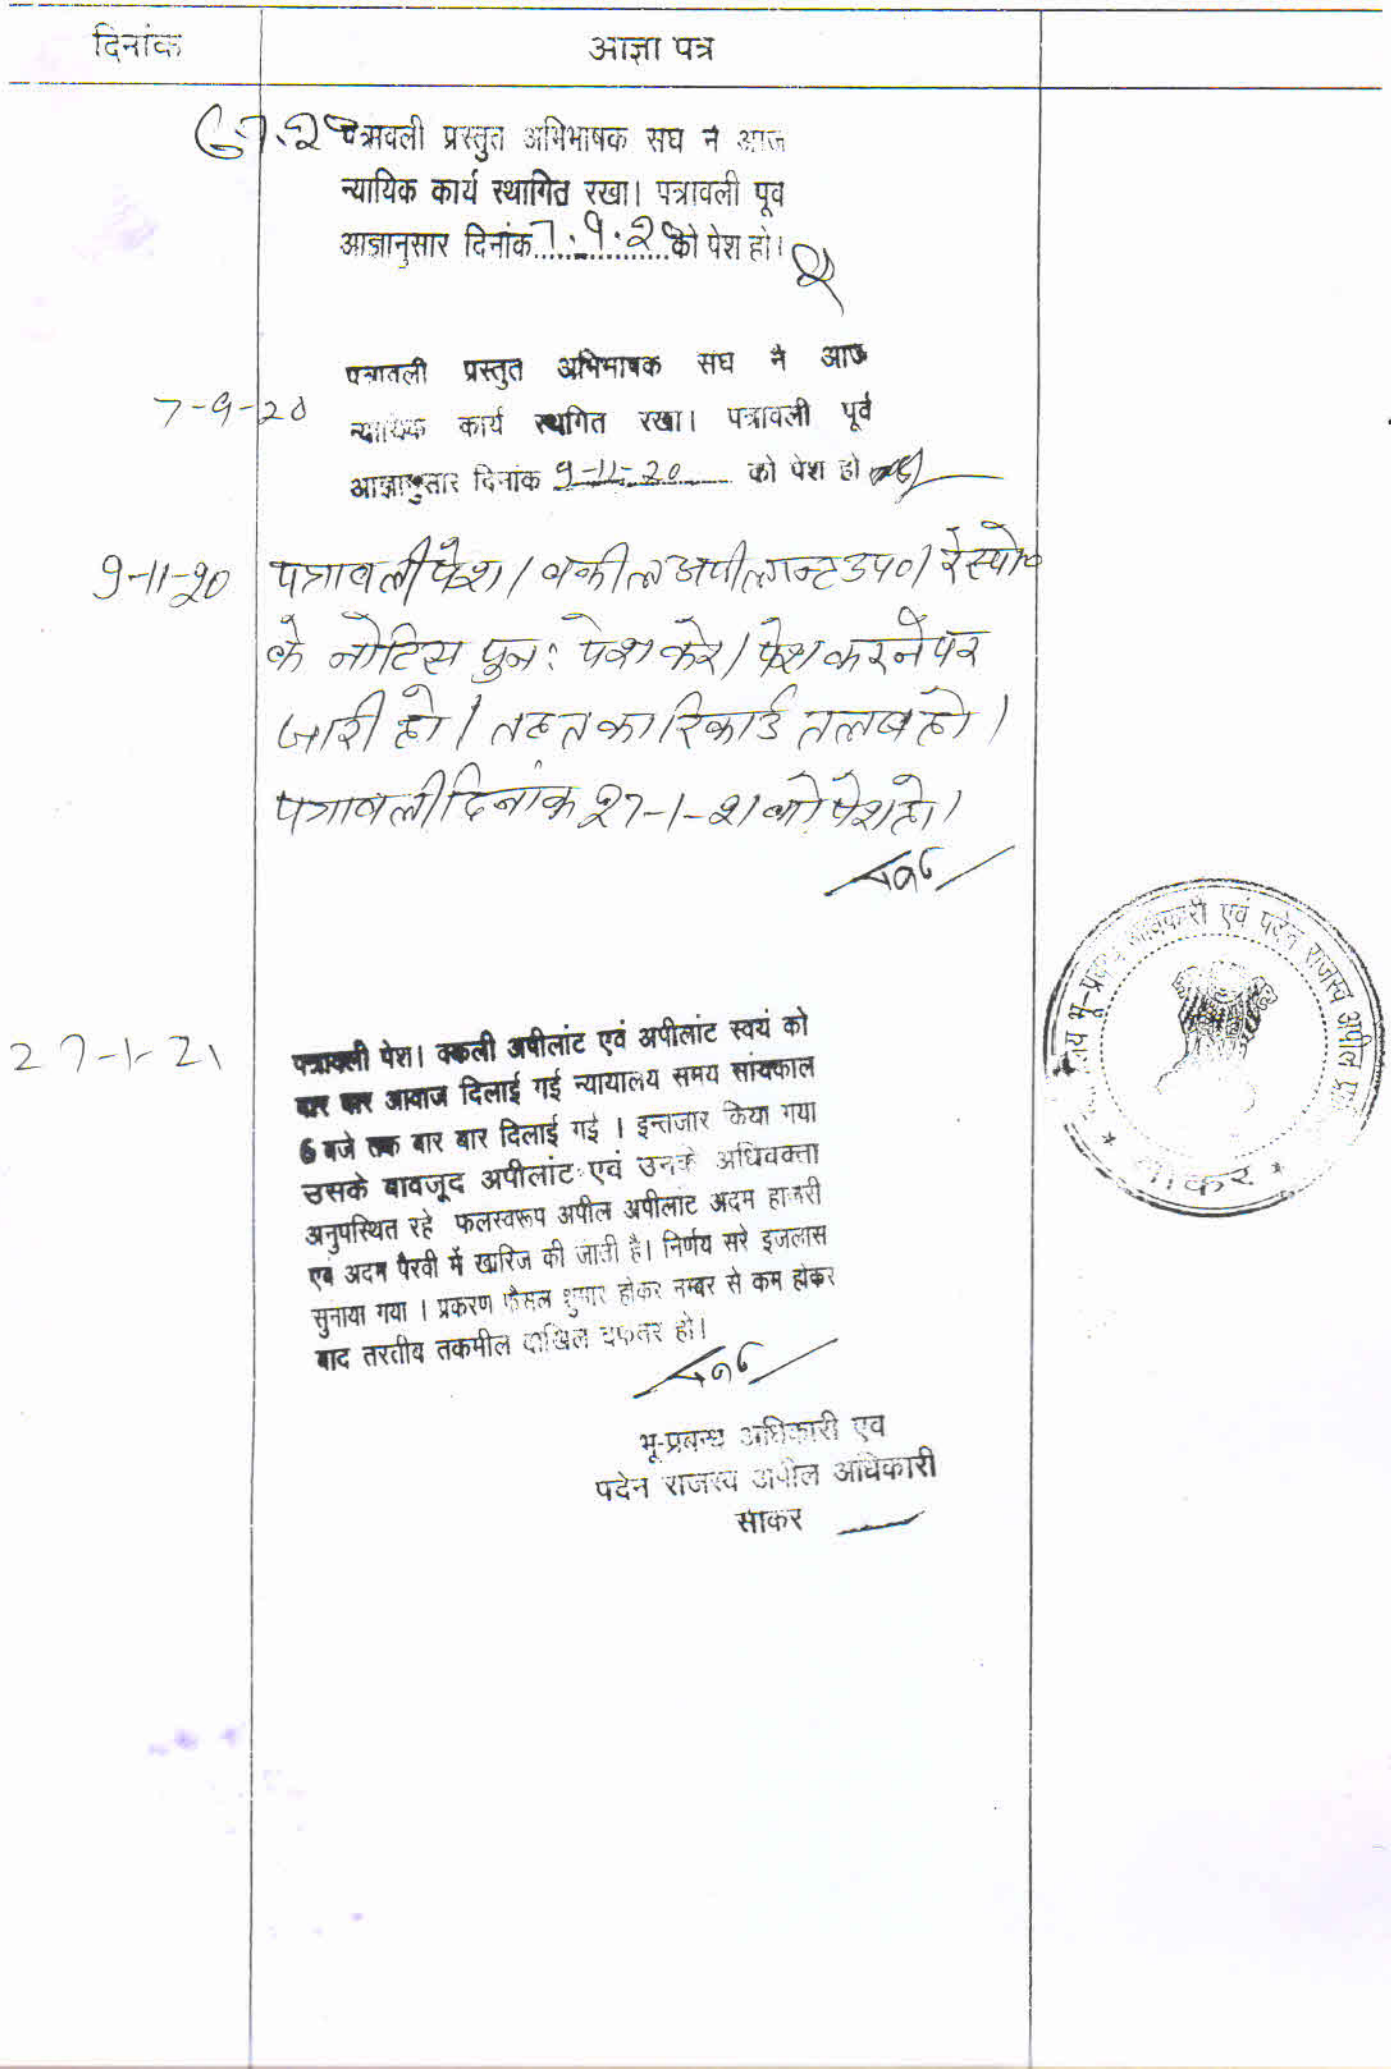 दिनांक
आज्ञा पत्र
पत्रावली प्रस्तुत अभिभाषक संघ ने आज
न्यायिक कार्य स्थागित रखा। पत्रावली पूर्व
आज्ञानुसार दिनांक 7.9.20 को पेश हो।
7-9-20
पत्रावली प्रस्तुत अभिभाषक संघ ने आज
न्यायिक कार्य स्थगित रखा। पत्रावली पूर्व
आज्ञानुसार दिनांक 9-11-20 को पेश हो
9-11-20
पत्रावली पेश। वकील अपीलान्ट उप०। रेस्पो०
के नोटिस पुन: पेश करे। पेश करने पर
जारी हो। तहत का रिकार्ड तलब हो।
पत्रावली दिनांक 27-1-21 को पेश हो।
27-1-21
पत्रावली पेश। वकली अपीलांट एवं अपीलांट स्वयं को
बार बार आवाज दिलाई गई न्यायालय समय सांयकाल
6 बजे तक बार बार दिलाई गई । इन्तजार किया गया
उसके बावजूद अपीलांट एवं उनके अधिवक्ता
अनुपस्थित रहे फलस्वरूप अपील अपीलांट अदम हाजरी
एवं अदम पैरवी में खारिज की जाती है। निर्णय सरे इजलास
सुनाया गया । प्रकरण फैसल शुमार होकर नम्बर से कम होकर
बाद तरतीब तकमील दाखिल दफतर हो।
भू-प्रबन्ध अधिकारी एवं
पदेन राजस्व अपील अधिकारी
सीकर
भू-प्रबन्ध अधिकारी एवं पदेन राजस्व अपील
* सीकर *